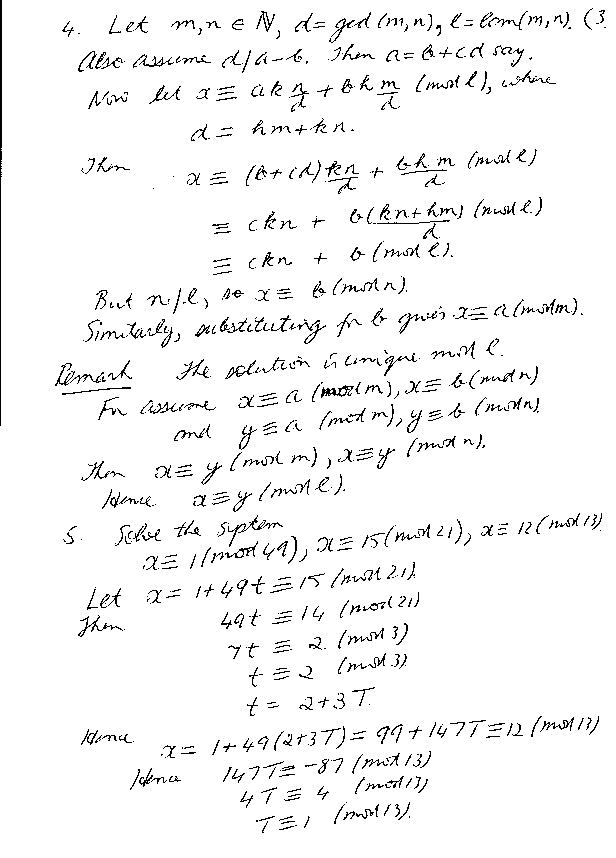 4. Let m,n ∈ ℕ, d = gcd(m,n), l = lcm(m,n). (3
Also assume d/a-b. Then a = b+cd say.
Now let x ≡ ak n/d + bh m/d (mod l), where
d = hm+kn.
Then x ≡ (b+cd) kn/d + bhm/d (mod l)
≡ ckn + b(kn+hm)/d (mod l)
≡ ckn + b (mod l).
But n/l, so x ≡ b (mod n).
Similarly, substituting for b gives x ≡ a (mod m).
Remark The solution is unique mod l.
For assume x ≡ a (mod m), x ≡ b (mod n)
and y ≡ a (mod m), y ≡ b (mod n)
Then x ≡ y (mod m), x ≡ y (mod n).
Hence x ≡ y (mod l).
5. Solve the system
x ≡ 1 (mod 49), x ≡ 15 (mod 21), x ≡ 12 (mod 13)
Let x = 1+49t ≡ 15 (mod 21).
Then 49t ≡ 14 (mod 21)
7t ≡ 2 (mod 3)
t ≡ 2 (mod 3)
t = 2+3T.
Hence x = 1+49(2+3T) = 99+147T ≡ 12 (mod 13)
Hence 147T ≡ -87 (mod 13)
4T ≡ 4 (mod 13)
T ≡ 1 (mod 13).